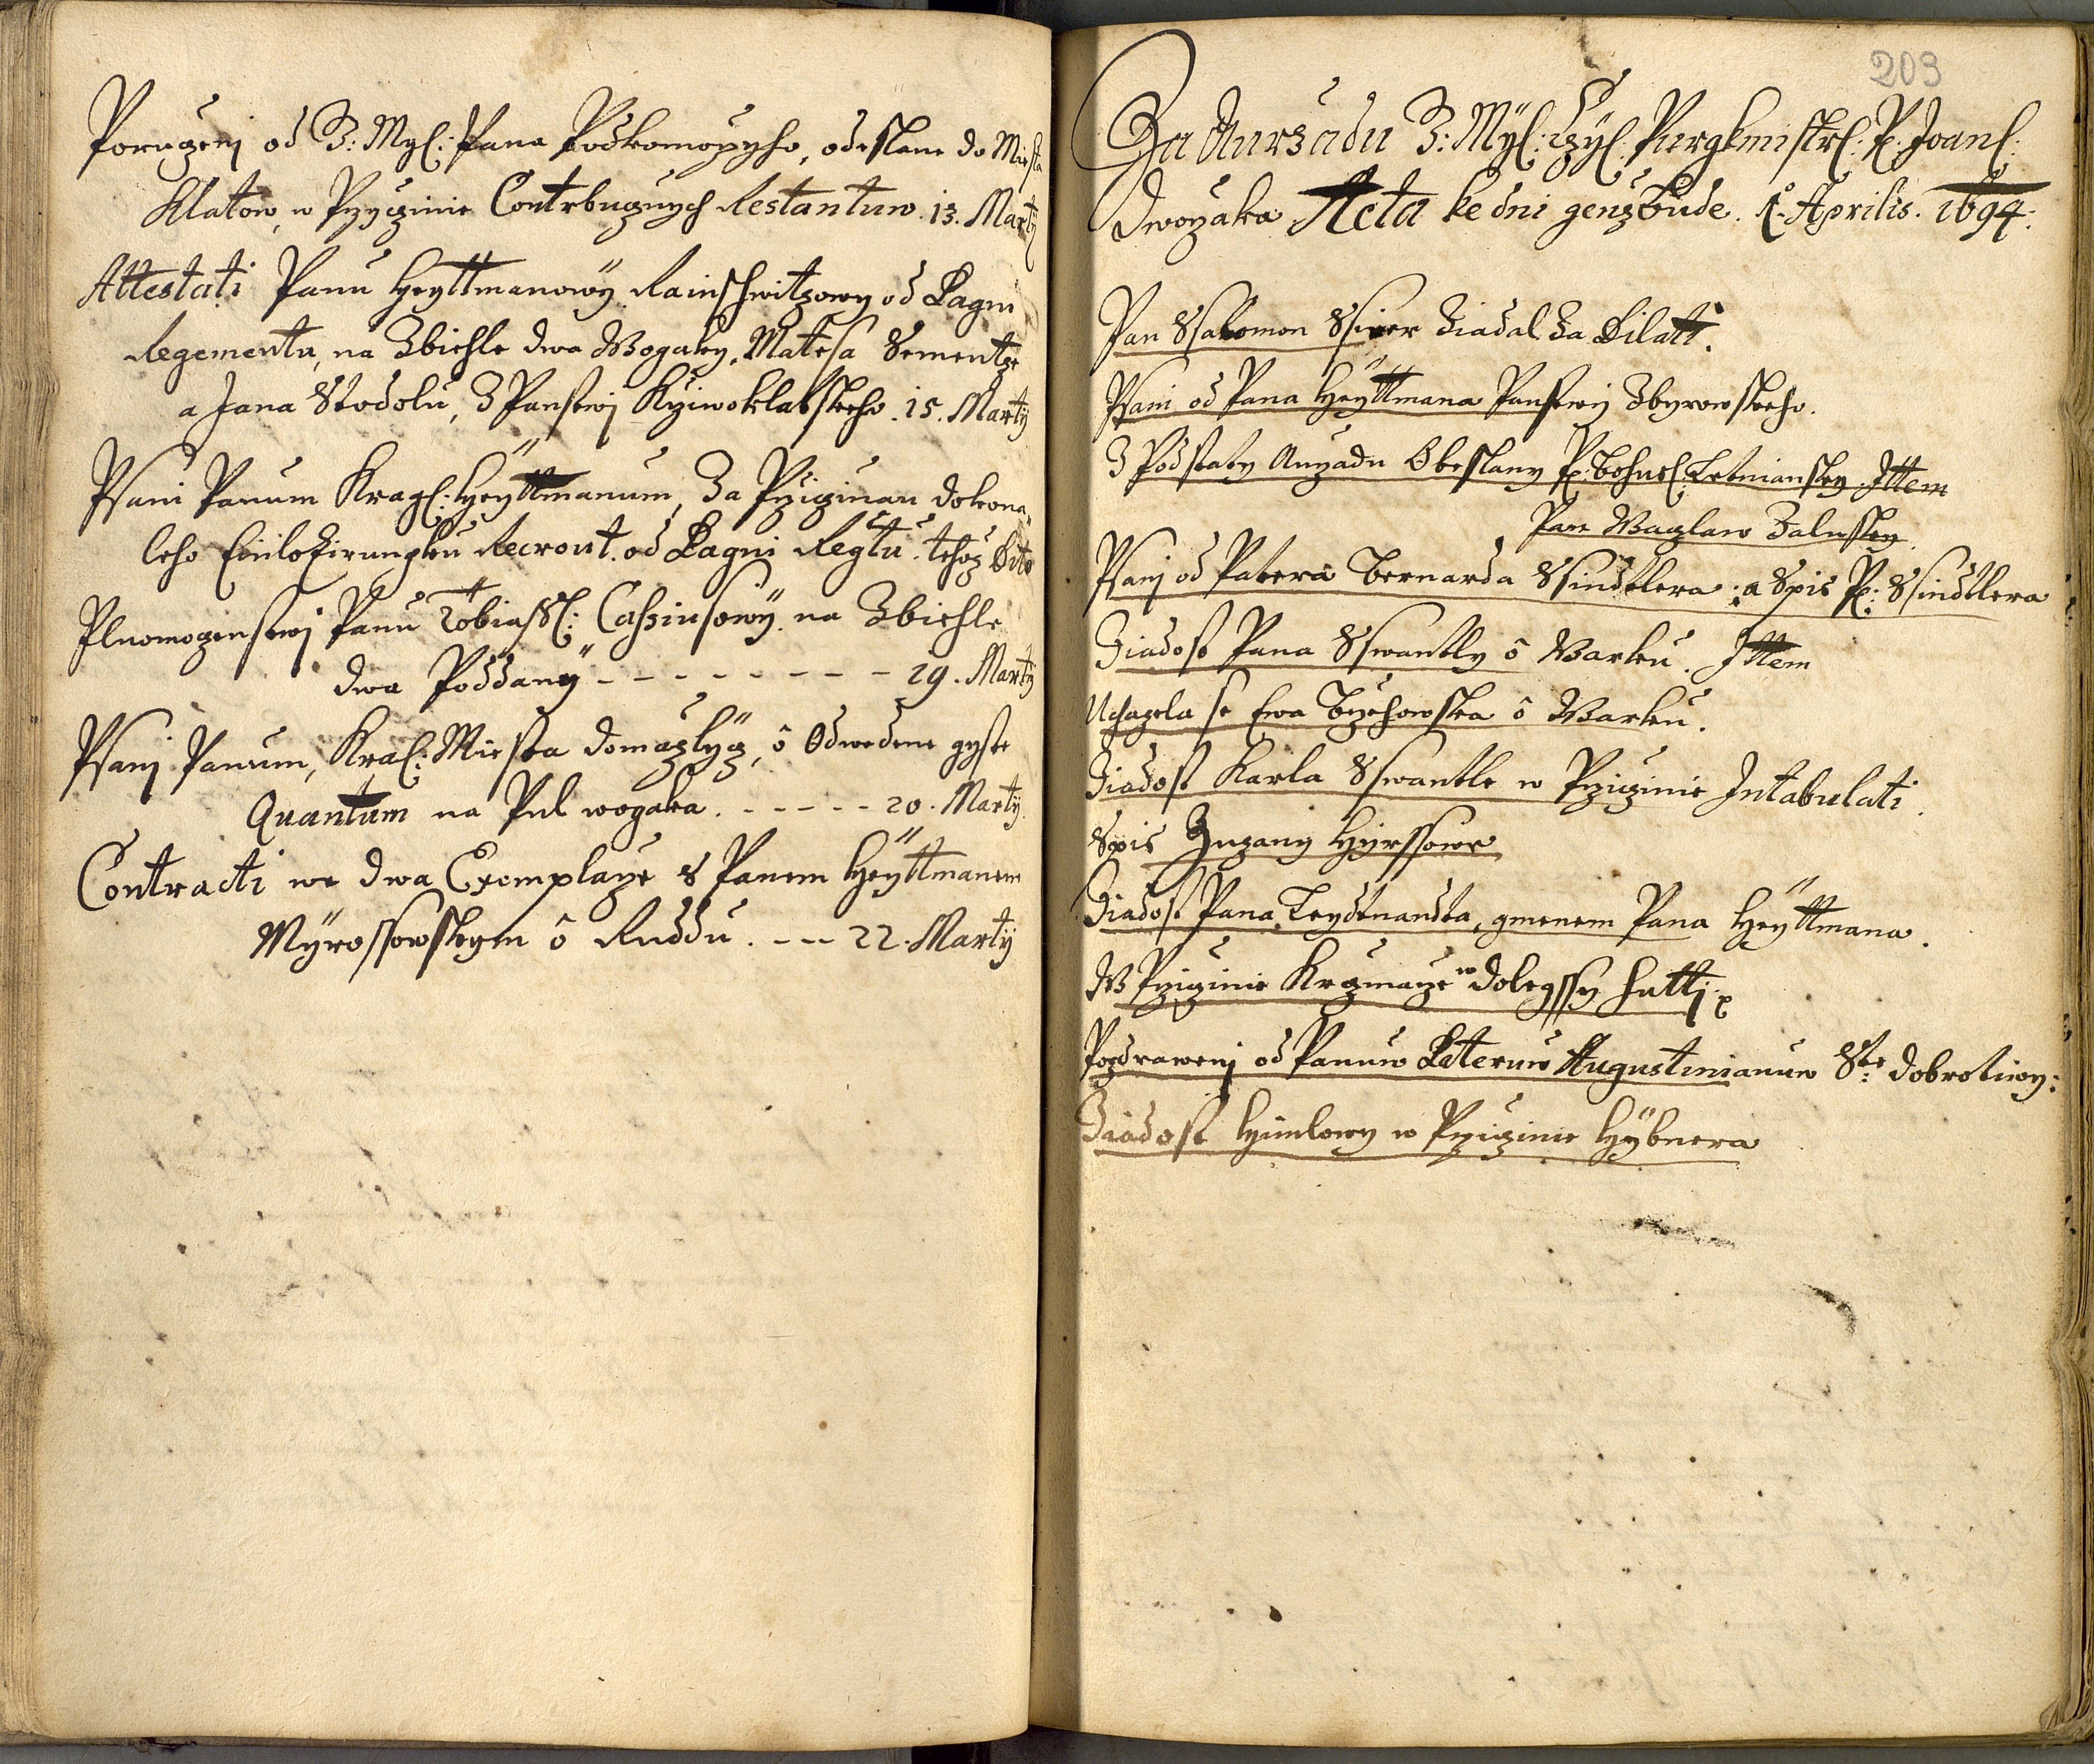 Poruczenj od J: Mył: Pana Podkomorzyho, odeslane do Miesta
Klatow, w Przyczinie Contrbuczných Restantuw. 13. Martÿ
Attestati Panu Heyttmanowÿ Rainschwitzowy od Bagni
Regementu, na Zbiehle dwa Wogaky, Matesa Sementze
a Jana Stodolu, z Panstwj Krziwoklatskeho. 15. Martÿ
Psani Panum Kragl: Heÿttmanum, za Prziczinau dokona¬
leho Einlozirungku Recrout. od Bagni Regtu. tehoz Dito
Plnomogenstwj Panu Tobiassl: Cassiusowÿ. na Zbiehle
dwa Poddaný - - - - - - - - 29. Martÿ
Psanj Panum, Kral: Miesta Domazlycz, ô Odwedene gyste
Quantum na Pul wogaka. - - - - - 20. Martÿ.
Contracti we dwa Exemplarze s Panem Heÿttmanem
Mÿrossowskym ô Ruddu. - - - 22. Martÿ
203
Za Aurzadu J: Mÿl: Czÿl: Purgkmistrl: P: Joanl:
Dworzaka Acta ke dni genz bude. 1. Aprilis. 1694.
Pan Ssalomon Ssirer Ziadal za Dilatt.
Psani od Pana Heÿttmana Panstwij Zbyrowskeho.
Z Podstaty Aurzadu Obeslany P: Bohusl: Letniansky. Ittem
Pan Waczlaw Zalusky.
Psanj od Patera Bernarda Ssindtlera: a Spis P: Ssindtlera
Ziadost Pana Sswantly ô Warku. Ittem
Uchazela se Ewa Brzehowska ô Warku.
Ziadost Karla Sswantle w Prziczinie Intabulati.
Spis Zuzany Hÿrssowe
Ziadost Pana Leydtnandta, gmenem Pana Heÿttmana.
W Prziczinie Krczmarze w Dolegssy Hutti
Pozdrawenj od Panuw Paterum Augustinianuw Ste: Dobrotiwy:
Ziadost Himlowy w Prziczinie Hÿbnera